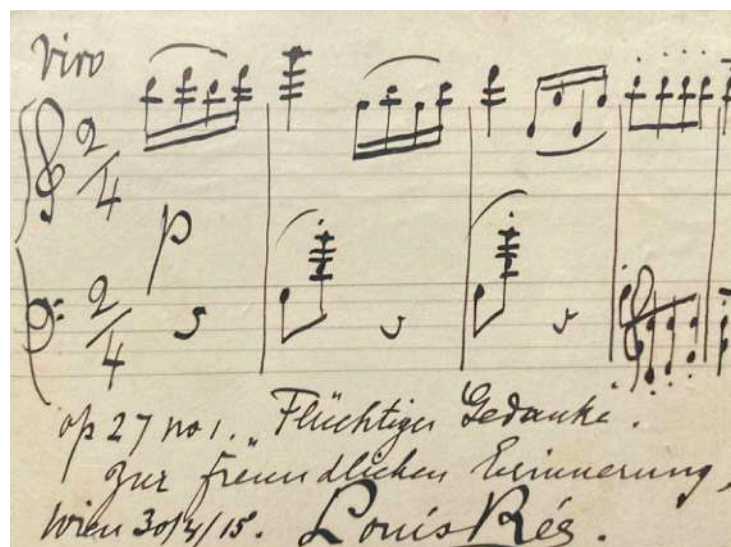 Vivo
2/4
p
2/4
op 27 no 1. „Flüchtiger Gedanke.
zur freundlichen Erinnerung,
Wien 30/4/15. Louis Rée.